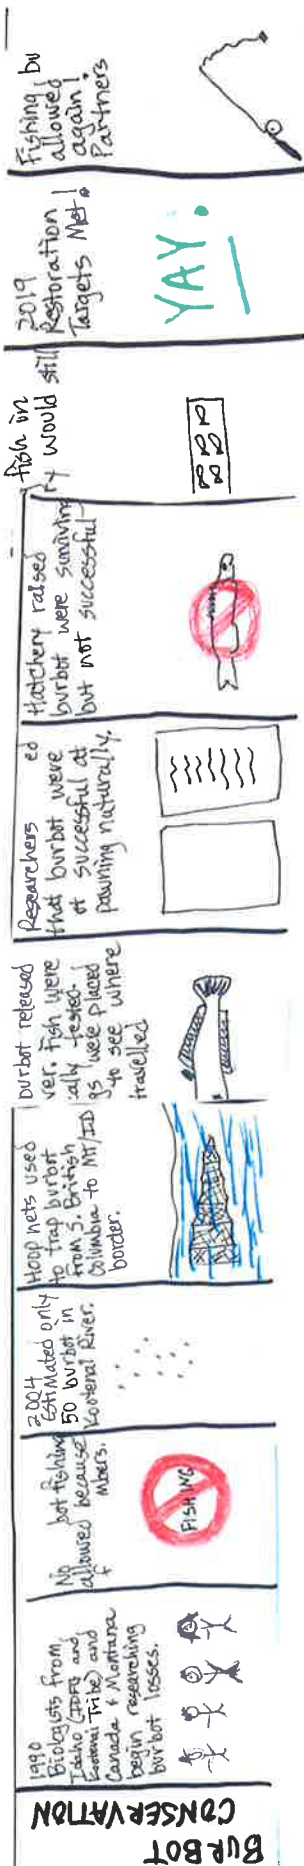 BURBOT
CONSERVATION
1990
Biologists from
Idaho (IDFG and
Kootenai Tribe) and
Canada + Montana
begin researching
burbot losses.
No bot fishing
allowed because
f mbers.
FISHING
2004
Estimated only
50 burbot in
Kootenai River.
Hoop nets used
to trap burbot
from S. British
Columbia to MT/ID
border.
burbot released
ver. fish were
cally tested.
gs were placed
to see where
travelled
Researchers ed
that burbot were
ot successful at
pawning naturally.
Hatchery raised
burbot were surviving
but not successful
fish in
ry would still
2019
Restoration
Targets Met!
YAY!
Fishing bu
allowed
again!
Partners